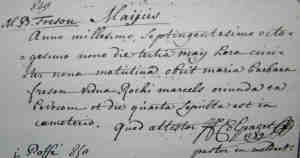 849
M. B. Freson Maijus
Anno millesimo Septingentesimo octo-
gesimo nono die tertia may hora circi-
ter nona matutina obiit maria barbara
freson vidua Rochi marcelo oriunda ex
et die quarta Sepulta est in
cemeterio. Quod attestor
pastor in
850